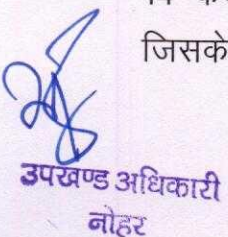 जिसके
उपखण्ड अधिकारी
नोहर